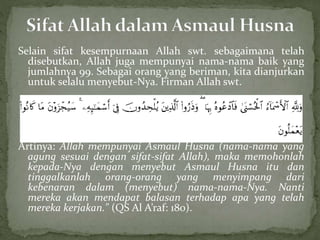 Sifat Allah dalam Asmaul Husna
Selain sifat kesempurnaan Allah swt. sebagaimana telah
disebutkan, Allah juga mempunyai nama-nama baik yang
jumlahnya 99. Sebagai orang yang beriman, kita dianjurkan
untuk selalu menyebut-Nya. Firman Allah swt.
وَلِلَّهِ ٱلْأَسْمَآءُ ٱلْحُسْنَىٰ فَٱدْعُوهُ بِهَا ۖ وَذَرُوا۟ ٱلَّذِينَ يُلْحِدُونَ فِىٓ أَسْمَـٰٓئِهِۦ ۚ سَيُجْزَوْنَ مَا كَانُوا۟
يَعْمَلُونَ
Artinya: Allah mempunyai Asmaul Husna (nama-nama yang
agung sesuai dengan sifat-sifat Allah), maka memohonlah
kepada-Nya dengan menyebut Asmaul Husna itu dan
tinggalkanlah orang-orang yang menyimpang dari
kebenaran dalam (menyebut) nama-nama-Nya. Nanti
mereka akan mendapat balasan terhadap apa yang telah
mereka kerjakan." (QS Al A'raf: 180).